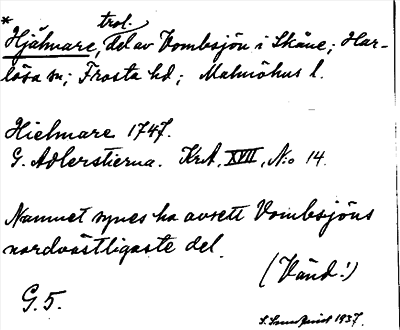 * trol.
Hjälmare, del av Vombsjön i Skåne; Har-
lösa sn; Frosta hd; Malmöhus l.
Hielmare 1747.
G. Adlerstierna. KrA, XVII, N:o 14.
Namnet synes ha avsett Vombsjöns
nordvästligaste del.
(Vänd!)
G. 5.
1937.